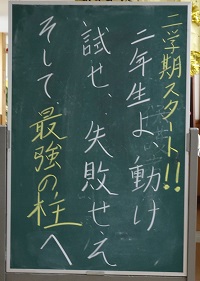 二学期スタート!!
二年生よ、動け
試せ、失敗せぇ
そして、最強の柱へ